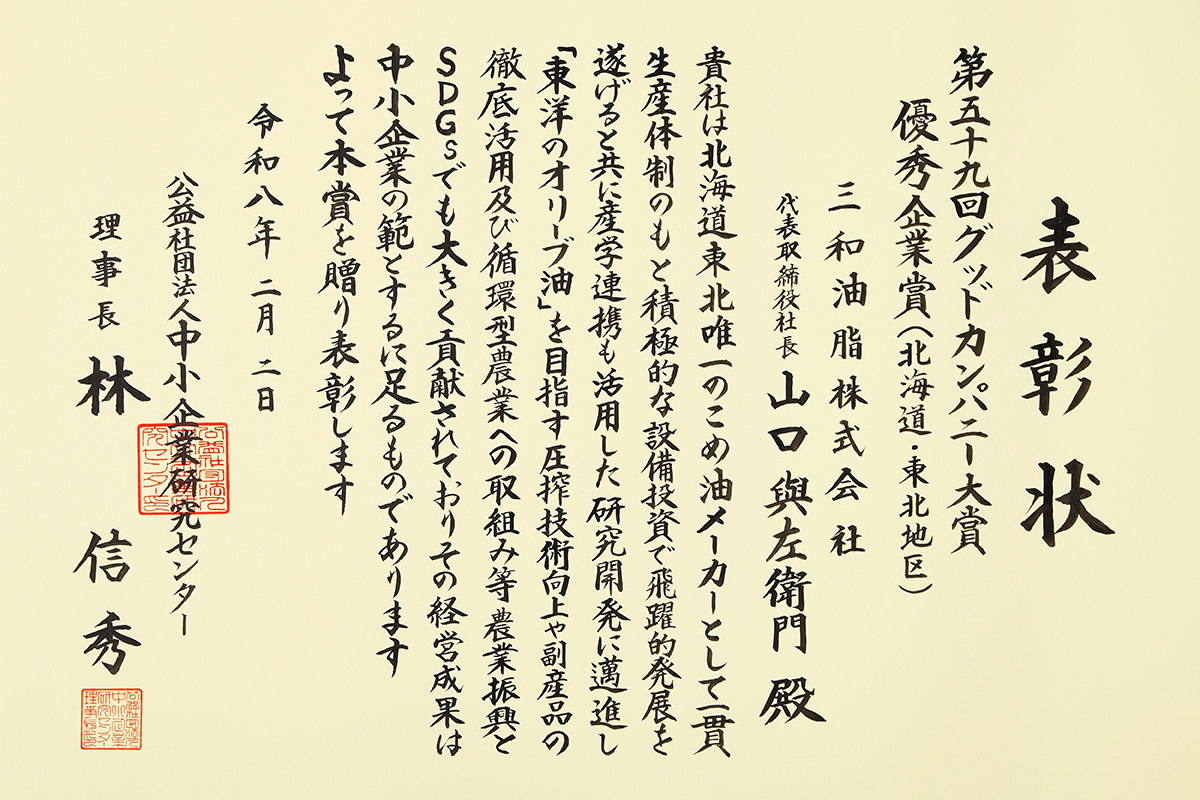 表彰状
第五十九回グッドカンパニー大賞
優秀企業賞（北海道・東北地区）
三和油脂株式会社
代表取締役社長 山口與左衛門殿
貴社は北海道東北唯一のこめ油メーカーとして一貫
生産体制のもと積極的な設備投資で飛躍的発展を
遂げると共に産学連携も活用した研究開発に邁進し
「東洋のオリーブ油」を目指す圧搾技術向上や副産品の
徹底活用及び循環型農業への取組み等農業振興と
SDGsでも大きく貢献されておりその経営成果は
中小企業の範とするに足るものであります
よって本賞を贈り表彰します
令和八年二月二日
公益社団法人中小企業研究センター
理事長 林信秀